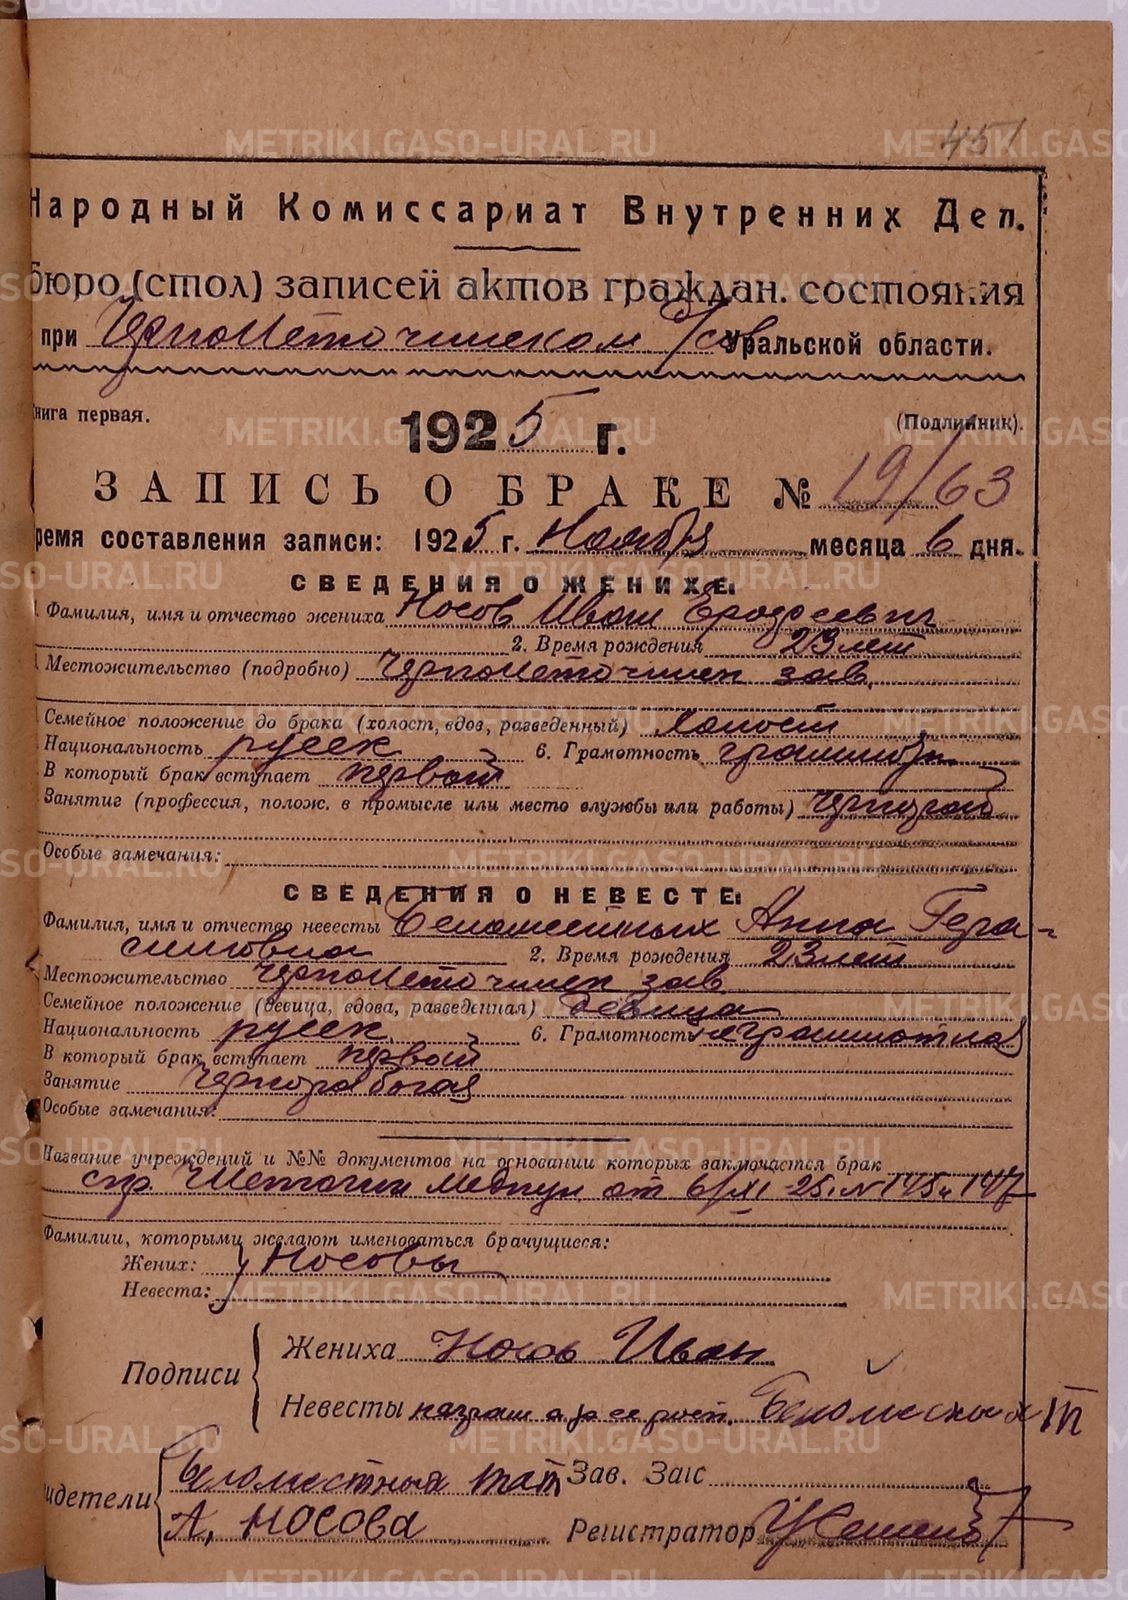 451
Народный Комиссариат Внутренних Дел.
бюро (стол) записей актов граждан. состояния
при Черноисточинском Уральской области.
книга первая. (Подлинник).
1925 г.
ЗАПИСЬ О БРАКЕ № 19/63
время составления записи: 1925 г. Ноября месяца 6 дня.
СВЕДЕНИЯ О ЖЕНИХЕ:
1. Фамилия, имя и отчество жениха Носов Иван Ерофеевич
2. Время рождения 23 лет
Местожительство (подробно) Черноисточинск зав.
Семейное положение до брака (холост, вдов, разведенный) холост
Национальность русск 6. Грамотность
В который брак вступает первый
Занятие (профессия, полож. в промысле или место службы или работы)
Особые замечания:
СВЕДЕНИЯ О НЕВЕСТЕ:
Фамилия, имя и отчество невесты Беломестных Анна Гера-
симовна 2. Время рождения 23 лет
Местожительство Черноисточинск зав
Семейное положение (девица, вдова, разведенная) девица
Национальность русск. 6. Грамотность неграмотная
В который брак вступает первый
Занятие Чернорабочая
Особые замечания:
Название учреждений и №№ документов на основании которых заключается брак
спр. от 6/XI-25. N 145 и 147
Фамилии, которыми желают именоваться брачущиеся:
Жених: Носовы
Невеста:
Подписи
Жениха Носов Иван
Невесты Беломестных
Свидетели
Беломестных Зав. Загс
А. Носова Регистратор
METRIKI.GASO-URAL.RU